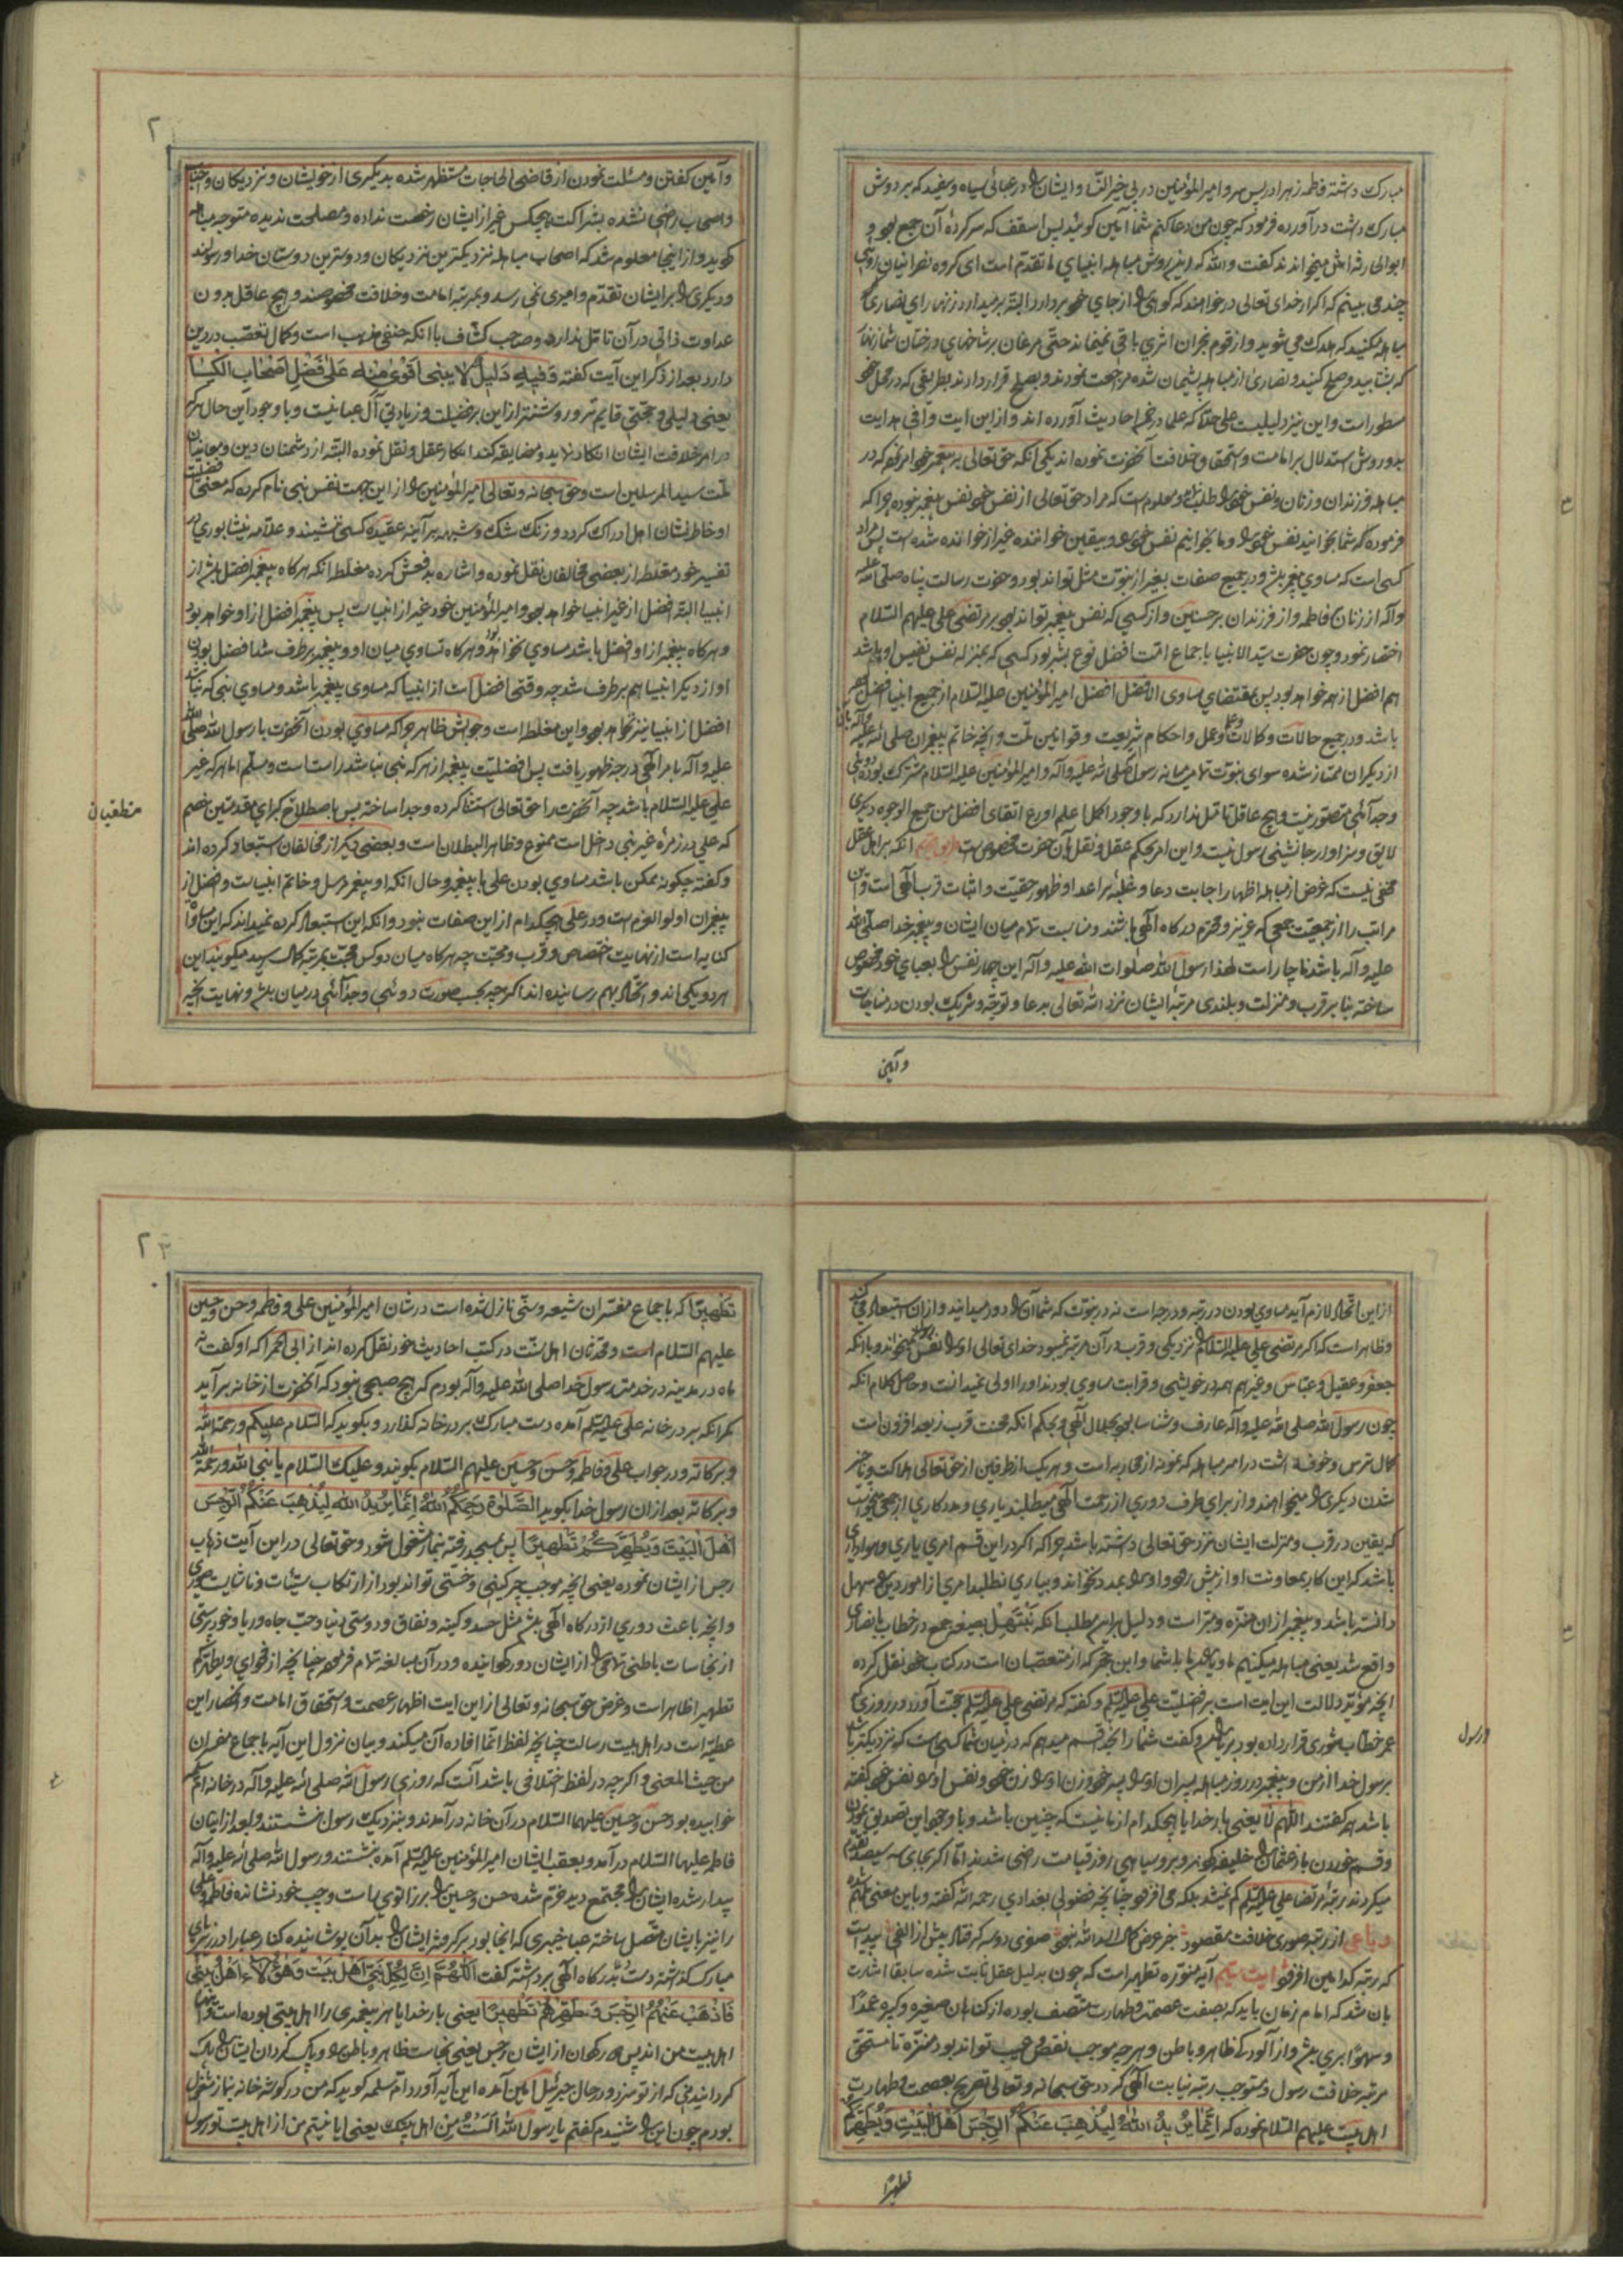 مبارک داشته فاطمه زهرا در پس سر و امیرالمؤمنین در پی خیر النسا و ایشان را در عبائی سیاه و سفید که بر دوش
مبارک داشت در آورده فرمود که چون من دعا کنم شما آمین کوئید پس اسقف که سر کرده آن جمع بود و
ابوالحارثه اش میخواندند کفت والله که این روش مباهله انبیای ما تقدم است ای کروه نصرانیان روئی
چند می بینم که اکر از خدای تعالی درخواهند که کوه را از جای خود بردارد البته بر میدارد زنهار ای نصاری
مباهله مکنید که هلاک می شوید و از قوم نجران اثری باقی نمیماند حتی مرغان بر شاخهای درختان شما زنهار
که بشتابید و صلح کنید و نصاری از مباهله پشیمان شده مراجعت نمودند و بصلح قرار دادند بطریقی که در محل خود
مسطور است و این نیز دلیلیست علی حده که علما در ضمن احادیث آورده اند و از این ایت وافی هدایت
بدو روش استدلال بر امامت و استحقاق خلافت آنحضرت نموده اند یکی آنکه حق تعالی بر پیغمبر خود امر نمود که در
مباهله فرزندان و زنان و نفس خود را طلب نماید و معلوم است که مراد حق تعالی از نفس خود نفس پیغمبر نبوده چرا که
فرموده که شما بخوانید نفس خود را و ما بخوانیم نفس خود را و بیقین خواننده غیر از خوانده شده است پس مراد
کسی است که مساوی پیغمبر باشد و در جمیع صفات بغیر از نبوت مثل تواند بود و حضرت رسالت پناه صلی الله علیه
و آله از زنان فاطمه و از فرزندان بر حسنین و از کسی که نفس پیغمبر تواند بود بر مرتضی علی علیهم السلام
اختصار نمود و چون حضرت سید الانبیا باجماع امت افضل نوع بشر بود کسی که بمنزله نفس نفیس او باشد
هم افضل از همه خواهد بود پس بمقتضای مساوی الافضل افضل امیرالمؤمنین علیه السلام از جمیع انبیا افضل
باشد و در جمیع حالات و کمالات و علم و عمل و احکام شریعت و قوانین ملت و آنچه خاتم پیغمبران صلی الله علیه و آله بان
از دیکران ممتاز شده سوای نبوت تمام میانه رسول صلی الله علیه و آله و امیرالمؤمنین علیه السلام مشترک بوده دوئی
و جدائی متصور نیست و هیچ عاقل تامل ندارد که با وجود اکمل اعلم اورع اتقای افضل من جمیع الوجوه دیکری
لایق و سزاوار جانشینی رسول نیست و این امر بحکم عقل و نقل بآن حضرت مخصوص است طریق دویم آنکه بر اهل عقل
مخفی نیست که غرض از مباهله اظهار اجابت دعا و غلبه بر اعدا و ظهور حقیت و اثبات قرب الهی است و این
مراتب را از جمعیت جمعی که عزیز و محترم درکاه الهی باشند و مناسبت تمام میان ایشان و پیغمبر خدا صلی الله
علیه و آله باشد ناچار است لهذا رسول الله صلوات الله علیه و آله این چهار نفس را بعبای خود مخصوص
ساخته بنا بر قرب و منزلت و بلندی مرتبه ایشان نزد الله تعالی بدعا و توجه و شریک بودن در مناجات
و آمین
۲
و آمین کفتن و مسئلت نمودن از قاضی الحاجات مستظهر شده بدیکری از خویشان و نزدیکان و احباب
و اصحاب راضی نشده بشراکت هیچکس غیر از ایشان رخصت نداده و مصلحت ندیده متوجه مباهله
کوید و از اینجا معلوم شد که اصحاب مباهله نزدیکترین نزدیکان و دوسترین دوستان خدا و رسولند
و دیکری را بر ایشان تقدم و امیری نمی رسد و بمرتبه امامت و خلافت مخصوصند و هیچ عاقل بدون
عداوت ذاتی در آن تامل ندارد و صاحب کشاف با آنکه حنفی مذهب است و کمال تعصب در دین
دارد بعد از ذکر این آیت کفته و فیه دلیل لا یبنی اقوی منه علی فضل اصحاب الکساء
یعنی دلیلی و حجتی قایم تر و روشنتر از این بر فضیلت و زیادتی آل عبا نیست و با وجود این حال هر که
در امر خلافت ایشان انکار نماید و مضایقه کند انکار عقل و نقل نموده البته از دشمنان دین و معاندان
ملت سید المرسلین است و حق سبحانه و تعالی امیرالمؤمنین را از این جهت نفس نبی نام کرده که معنی فضیلت
او خاطر نشان اهل ادراک کردد و زنک شک و شبهه بر آینه عقیده کسی ننشیند و علامه نیشابوری در
تفسیر خود مغلطه از بعضی مخالفان نقل نموده و اشاره بدفعش کرده مغلطه آنکه هرکاه پیغمبر افضل باشد از
انبیا البته افضل از غیر انبیا خواهد بود و امیرالمؤمنین خود غیر از انبیاست پس پیغمبر افضل از او خواهد بود
و هرکاه پیغمبر از او افضل باشد مساوی نخواهد بود و هرکاه تساوی میان او و پیغمبر برطرف شد افضل بودن
او از دیکر انبیا هم برطرف شد چه وقتی افضل است از انبیا که مساوی پیغمبر باشد و مساوی نبی که نباشد
افضل از انبیا نیز نخواهد بود و این مغلطه است و جوابش ظاهر چرا که مساوی بودن آنحضرت با رسول الله صلی الله
علیه و آله بامر الهی درجه ظهور یافت پس افضلیت پیغمبر از هر که نبی نباشد راست است و مسلم اما هر که غیر
علی علیه السلام باشد چه آنحضرت را حق تعالی استثنا کرده و جدا ساخته پس باصطلاح کبرای مقدمتین خصم
که علی در زمره غیر نبی داخل است ممنوع و ظاهر البطلان است و بعضی دیکر از مخالفان استبعاد کرده اند
و کفته چکونه ممکن باشد مساوی بودن علی با پیغمبر و حال آنکه او پیغمبر مرسل و خاتم انبیاست و افضل از
پیغبران اولوالعزم است و در علی هیچکدام از این صفات نبود و آنکه این استبعاد کرده نمیداند که این مساوات
کنایه است از نهایت اختصاص و قرب و محبت چه هرکاه میان دو کس محبت بمرتبه کمال رسید میکویند این
هر دو یکی اند و اتحاد بهم رسانیده اند اکر چه بحسب صورت دوئی و جدائی در میان باشد و نهایت الخبر
منطقیان
از این اتحاد لازم آید مساوی بودن در رتبه و درجه است نه در نبوت که شما آن را دور میدانید و از آن استبعاد می کنید
و ظاهر است که اکر مرتضی علی علیه السلام را نزدیکی و قرب در آن مرتبه نمیبود خدای تعالی او را نفس پیغمبر نمیخواند و با آنکه
جعفر و عقیل و عباس و غیرهم همه در خویشی و قرابت مساوی بودند او را اولی نمیدانست و حاصل کلام آنکه
چون رسول الله صلی الله علیه و آله عارف و شناسا بود بجلال الهی و بحکم آنکه محنت قرب ز بعد افزون است
کمال ترس و خوف داشت در امر مباهله که نمونه از محاربه است و هر یک از طرفین از حق تعالی هلاکت و ناچیز
شدن دیکری را میخواهند و از برای طرف دوری از رحمت الهی میطلبند یاری و مددکاری از جمعی میخواست
که یقین در قرب و منزلت ایشان نزد حق تعالی داشته باشد چرا که اکر در این قسم امری یاری و هواداری
باشد که این کار بمعاونت او از پیش رود و او را بمدد نخواند و بیاری نطلبد امری از امور دین را سهل
دانسته باشد و پیغمبر از آن منزه و مبراست و دلیل بر این مطلب آنکه نبتهل بصیغه جمع در خطاب با نصاری
واقع شد یعنی مباهله میکنیم ما و یاوران ما با شما و ابن حجر که از متعصبان است در کتاب خود نقل کرده
آنچه مؤید دلالت این ایت است بر فضلیت علی علیه السلم و کفته که مرتضی علی علیه السلم حجت آورد در روزی که
عمر خطاب شوری قرار داده بود بر مردم و کفت شما را بخدا قسم میدهم که در میان شما کسی هست که نزدیکتر باشد
برسول خدا از من و پیغمبر در روز مباهله پسران او را پسر خود و زن او را زن خود و نفس او را نفس خود کفته
باشد همه کفتند اللهم لا یعنی بار خدایا هیچکدام از ما نیست که چنین باشد و با وجود این تصدیق نمودن
و قسم خوردن باز عثمان را خلیفه کردند و بروسیاهی روز قیامت راضی شدند اما اکر بجای سه سیصد مقدم
میکردند رتبه مرتضا علی علیه السلم کم نمیشد بلکه می افزود چنانچه فضولی بغدادی رحمه الله کفته و باین معنی ملهم شده
رباعی از رتبه صوری خلافت مقصود جز عرض کمال اسدالله نبود صفری دو سه کر فتاد پیش از الفی پیداست
که رتبه کدامین افزود ایت سیم آیه منوره تطهیر است که چون بدلیل عقل ثابت شده سابقا اشارت
بان شد که امام زمان باید که بصفت عصمت و طهارت متصف بوده از کناهان صغیره و کبیره عمدا
و سهوا بری باشد و از آلودکی ظاهر و باطن و هر چه موجب نقص و عیب تواند بود منزه تا مستحق
مرتبه خلافت رسول و مستوجب رتبه نیابت الهی کردد حق سبحانه و تعالی تصریح بعصمت و طهارت
اهل بیت علیهم السلام نموده که انما یرید الله لیذهب عنکم الرجس اهل البیت و یطهرکم
تطهیرا
ورسول
۲
تطهیرا که باجماع مفسران شیعه و سنی نازل شده است در شان امیرالمؤمنین علی و فاطمه و حسن و حسین
علیهم السلام است و محدثان اهل سنت در کتب احادیث خود نقل کرده اند از ابی الحمرا که او کفت نه
ماه در مدینه در خدمت رسول خدا صلی الله علیه و آله بودم که هیچ صبحی نبود که آنحضرت از خانه بر آید
مکر آنکه بر در خانه علی علیه السلم آمده دست مبارک بر در خانه کذارد و بکوید که السلام علیکم و رحمة الله
و برکاته و در جواب علی و فاطمه و حسن و حسین علیهم السلام بکویند و علیک السلام یا نبی الله و رحمة الله
و برکاته بعد از ان رسول خدا بکوید الصلوة رحمکم الله انما یرید الله لیذهب عنکم الرجس
اهل البیت و یطهرکم تطهیرا پس بمسجد رفته بنماز مشغول شود و حق تعالی در این آیت ذهاب
رجس از ایشان نموده یعنی آنچه موجب چرکینی و خستی تواند بود از ارتکاب سیئات و ناشایست صوری
و آنچه باعث دوری از درکاه الهی باشد مثل حسد و کینه و نفاق و دوستی دنیا و حب جاه و ریا و خود پرستی
از نجاسات باطنی تمامی را از ایشان دور کردانیده و در آن مبالغه تمام فرموده چنانچه از فحوای و یطهرکم
تطهیرا ظاهر است و غرض حق سبحانه و تعالی از این ایت اظهار عصمت و استحقاق امامت و انحصار این
عطیه است در اهل بیت رسالت چنانچه لفظ انما افاده آن میکند و بیان نزول این آیه باجماع مفسران
من حیث المعنی و اکر چه در لفظ اختلافی باشد آنست که روزی رسول الله صلی الله علیه و آله در خانه ام سلمه
خوابیده بود حسن و حسین علیهما السلام در آن خانه در آمدند و بنزدیک رسول نشستند و بعد از ایشان
فاطمه علیها السلام در آمد و بعقب ایشان امیرالمؤمنین علیه السلم آمده نشستند و رسول الله صلی الله علیه و آله
بیدار شده ایشان را مجتمع دید خرم شده حسن و حسین را بر زانوی راست و چپ خود نشانده فاطمه و علی
را نیز بایشان متصل ساخته عبا خیبری که آنجا بود بر کرفته ایشان را بدان پوشانیده کنار عبا را در زیر پای
مبارک کذاشته دست بدرکاه الهی برداشته کفت اللهم ان لکل نبی اهل بیت و هؤلاء اهل بیتی
فاذهب عنهم الرجس و طهرهم تطهیرا یعنی بار خدایا هر پیغمبری را اهل بیتی بوده است و اینها
اهل بیت من اند پس دور کردان از ایشان رجس یعنی نجاست ظاهر و باطن را و پاک کردان ایشان را پاک
کردانیدنی که از تو سزد در حال جبرئیل امین آمده این آیه آورد ام سلمه کوید که من در کوشه خانه بنماز مشغول
بودم چون این را شنیدم کفتم یا رسول الله الست من اهل بیتک یعنی ایا نیستم من از اهل بیت تو رسول